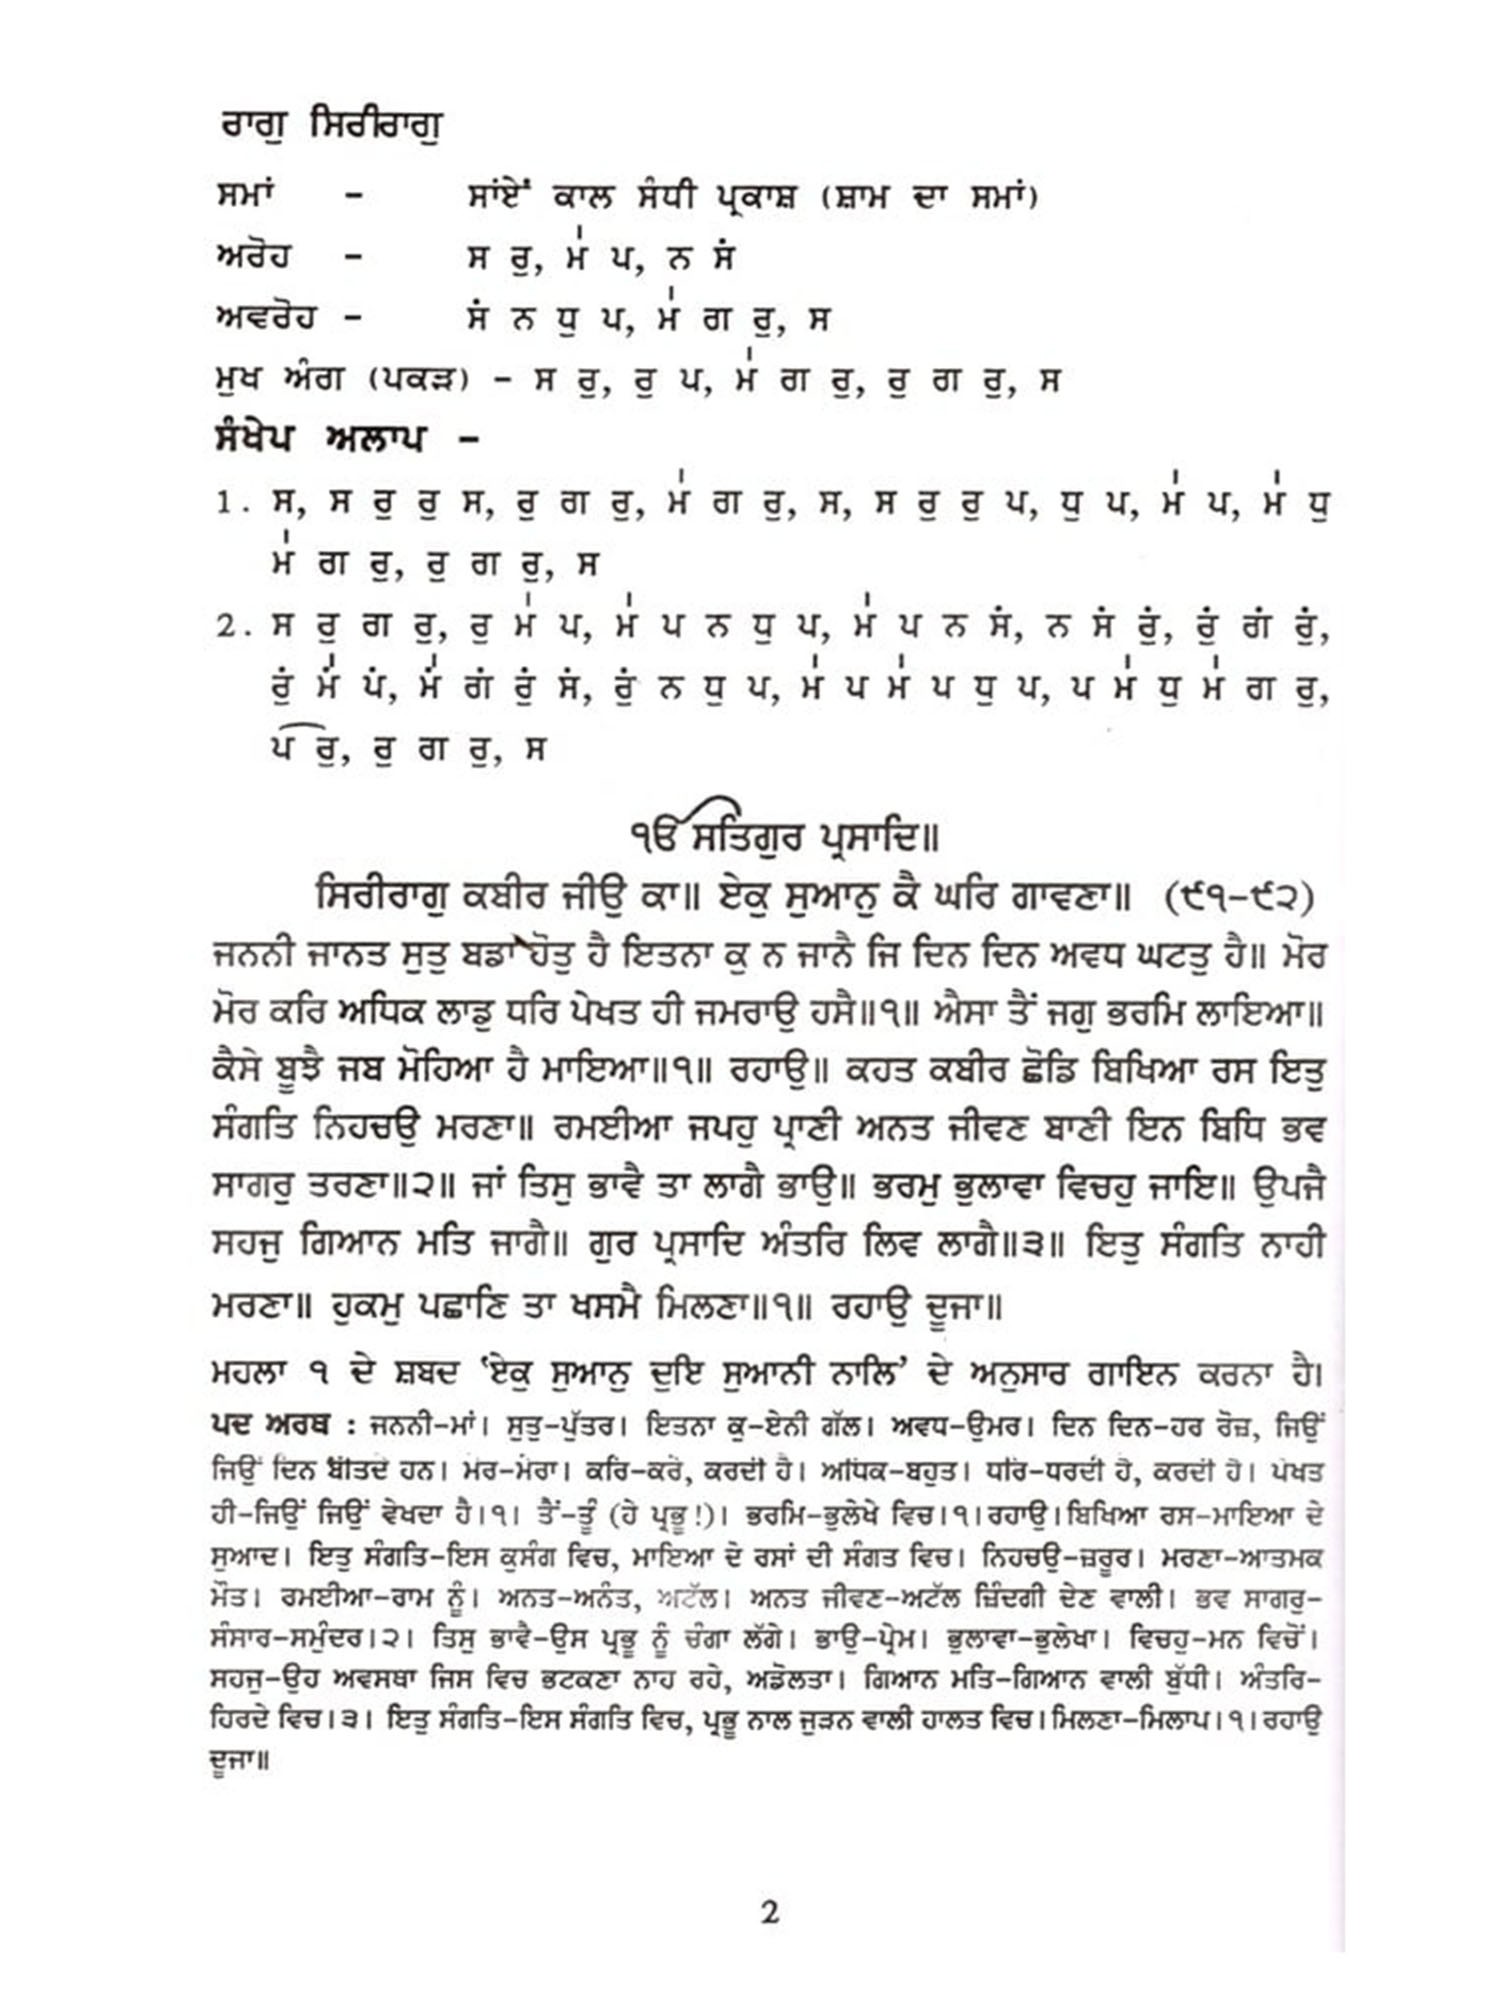 ਰਾਗੁ ਸਿਰੀਰਾਗੁ
ਸਮਾਂ – ਸਾਂਏਂ ਕਾਲ ਸੰਧੀ ਪ੍ਰਕਾਸ਼ (ਸ਼ਾਮ ਦਾ ਸਮਾਂ)
ਅਰੋਹ – ਸ ਰੁ, ਮ॑ ਪ, ਨ ਸਂ
ਅਵਰੋਹ – ਸਂ ਨ ਧੁ ਪ, ਮ॑ ਗ ਰੁ, ਸ
ਮੁਖ ਅੰਗ (ਪਕੜ) – ਸ ਰੁ, ਰੁ ਪ, ਮ॑ ਗ ਰੁ, ਰੁ ਗ ਰੁ, ਸ
ਸੰਖੇਪ ਅਲਾਪ –
1. ਸ, ਸ ਰੁ ਰੁ ਸ, ਰੁ ਗ ਰੁ, ਮ॑ ਗ ਰੁ, ਸ, ਸ ਰੁ ਰੁ ਪ, ਧੁ ਪ, ਮ॑ ਪ, ਮ॑ ਧੁ
ਮ॑ ਗ ਰੁ, ਰੁ ਗ ਰੁ, ਸ
2. ਸ ਰੁ ਗ ਰੁ, ਰੁ ਮ॑ ਪ, ਮ॑ ਪ ਨ ਧੁ ਪ, ਮ॑ ਪ ਨ ਸਂ, ਨ ਸਂ ਰੁਂ, ਰੁਂ ਗਂ ਰੁਂ,
ਰੁਂ ਮ॑ਂ ਪਂ, ਮ॑ਂ ਗਂ ਰੁਂ ਸਂ, ਰੁਂ ਨ ਧੁ ਪ, ਮ॑ ਪ ਮ॑ ਪ ਧੁ ਪ, ਪ ਮ॑ ਧੁ ਮ॑ ਗ ਰੁ,
ਪ ਰੁ, ਰੁ ਗ ਰੁ, ਸ
ੴ ਸਤਿਗੁਰ ਪ੍ਰਸਾਦਿ॥
ਸਿਰੀਰਾਗੁ ਕਬੀਰ ਜੀਉ ਕਾ॥ ਏਕੁ ਸੁਆਨੁ ਕੈ ਘਰਿ ਗਾਵਣਾ॥ (੯੧-੯੨)
ਜਨਨੀ ਜਾਨਤ ਸੁਤੁ ਬਡਾ ਹੋਤੁ ਹੈ ਇਤਨਾ ਕੁ ਨ ਜਾਨੈ ਜਿ ਦਿਨ ਦਿਨ ਅਵਧ ਘਟਤੁ ਹੈ॥ ਮੋਰ
ਮੋਰ ਕਰਿ ਅਧਿਕ ਲਾਡੁ ਧਰਿ ਪੇਖਤ ਹੀ ਜਮਰਾਉ ਹਸੈ॥੧॥ ਐਸਾ ਤੈਂ ਜਗੁ ਭਰਮਿ ਲਾਇਆ॥
ਕੈਸੇ ਬੂਝੈ ਜਬ ਮੋਹਿਆ ਹੈ ਮਾਇਆ॥੧॥ ਰਹਾਉ॥ ਕਹਤ ਕਬੀਰ ਛੋਡਿ ਬਿਖਿਆ ਰਸ ਇਤੁ
ਸੰਗਤਿ ਨਿਹਚਉ ਮਰਣਾ॥ ਰਮਈਆ ਜਪਹੁ ਪ੍ਰਾਣੀ ਅਨਤ ਜੀਵਣ ਬਾਣੀ ਇਨ ਬਿਧਿ ਭਵ
ਸਾਗਰੁ ਤਰਣਾ॥੨॥ ਜਾਂ ਤਿਸੁ ਭਾਵੈ ਤਾ ਲਾਗੈ ਭਾਉ॥ ਭਰਮੁ ਭੁਲਾਵਾ ਵਿਚਹੁ ਜਾਇ॥ ਉਪਜੈ
ਸਹਜੁ ਗਿਆਨ ਮਤਿ ਜਾਗੈ॥ ਗੁਰ ਪ੍ਰਸਾਦਿ ਅੰਤਰਿ ਲਿਵ ਲਾਗੈ॥੩॥ ਇਤੁ ਸੰਗਤਿ ਨਾਹੀ
ਮਰਣਾ॥ ਹੁਕਮੁ ਪਛਾਣਿ ਤਾ ਖਸਮੈ ਮਿਲਣਾ॥੧॥ ਰਹਾਉ ਦੂਜਾ॥
ਮਹਲਾ ੧ ਦੇ ਸ਼ਬਦ 'ਏਕੁ ਸੁਆਨੁ ਦੁਇ ਸੁਆਨੀ ਨਾਲਿ' ਦੇ ਅਨੁਸਾਰ ਗਾਇਨ ਕਰਨਾ ਹੈ।
ਪਦ ਅਰਥ : ਜਨਨੀ-ਮਾਂ। ਸੁਤੁ-ਪੁੱਤਰ। ਇਤਨਾ ਕੁ-ਏਨੀ ਗੱਲ। ਅਵਧ-ਉਮਰ। ਦਿਨ ਦਿਨ-ਹਰ ਰੋਜ਼, ਜਿਉਂ
ਜਿਉਂ ਦਿਨ ਬੀਤਦੇ ਹਨ। ਮੋਰ-ਮੇਰਾ। ਕਰਿ-ਕਰੇ, ਕਰਦੀ ਹੈ। ਅਧਿਕ-ਬਹੁਤ। ਧਰਿ-ਧਰਦੀ ਹੈ, ਕਰਦੀ ਹੈ। ਪੇਖਤ
ਹੀ-ਜਿਉਂ ਜਿਉਂ ਵੇਖਦਾ ਹੈ।੧। ਤੈਂ-ਤੂੰ (ਹੇ ਪ੍ਰਭੂ!)। ਭਰਮਿ-ਭੁਲੇਖੇ ਵਿਚ।੧।ਰਹਾਉ।ਬਿਖਿਆ ਰਸ-ਮਾਇਆ ਦੇ
ਸੁਆਦ। ਇਤੁ ਸੰਗਤਿ-ਇਸ ਕੁਸੰਗ ਵਿਚ, ਮਾਇਆ ਦੇ ਰਸਾਂ ਦੀ ਸੰਗਤ ਵਿਚ। ਨਿਹਚਉ-ਜ਼ਰੂਰ। ਮਰਣਾ-ਆਤਮਕ
ਮੌਤ। ਰਮਈਆ-ਰਾਮ ਨੂੰ। ਅਨਤ-ਅਨੰਤ, ਅਟੱਲ। ਅਨਤ ਜੀਵਣ-ਅਟੱਲ ਜ਼ਿੰਦਗੀ ਦੇਣ ਵਾਲੀ। ਭਵ ਸਾਗਰੁ-
ਸੰਸਾਰ-ਸਮੁੰਦਰ।੨। ਤਿਸੁ ਭਾਵੈ-ਉਸ ਪ੍ਰਭੂ ਨੂੰ ਚੰਗਾ ਲੱਗੇ। ਭਾਉ-ਪ੍ਰੇਮ। ਭੁਲਾਵਾ-ਭੁਲੇਖਾ। ਵਿਚਹੁ-ਮਨ ਵਿਚੋਂ।
ਸਹਜੁ-ਉਹ ਅਵਸਥਾ ਜਿਸ ਵਿਚ ਭਟਕਣਾ ਨਾਹ ਰਹੇ, ਅਡੋਲਤਾ। ਗਿਆਨ ਮਤਿ-ਗਿਆਨ ਵਾਲੀ ਬੁੱਧੀ। ਅੰਤਰਿ-
ਹਿਰਦੇ ਵਿਚ।੩। ਇਤੁ ਸੰਗਤਿ-ਇਸ ਸੰਗਤਿ ਵਿਚ, ਪ੍ਰਭੂ ਨਾਲ ਜੁੜਨ ਵਾਲੀ ਹਾਲਤ ਵਿਚ।ਮਿਲਣਾ-ਮਿਲਾਪ।੧।ਰਹਾਉ
ਦੂਜਾ॥
2